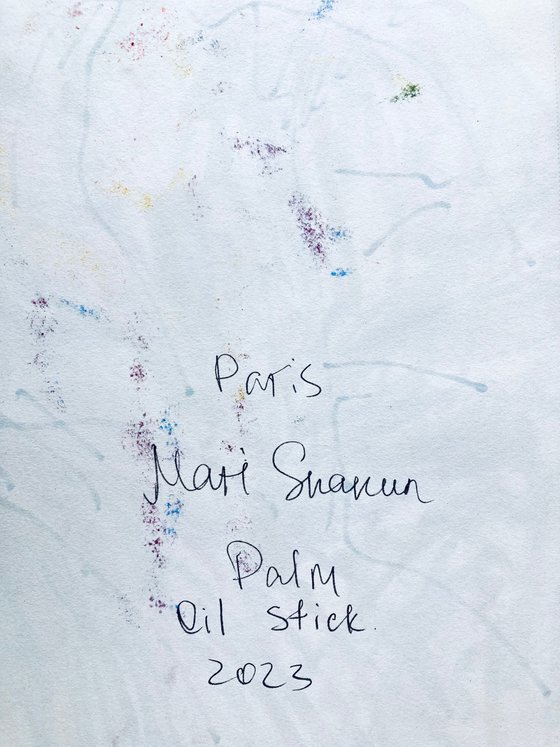 Paris
Mari Skakun
Palm
Oil stick.
2023